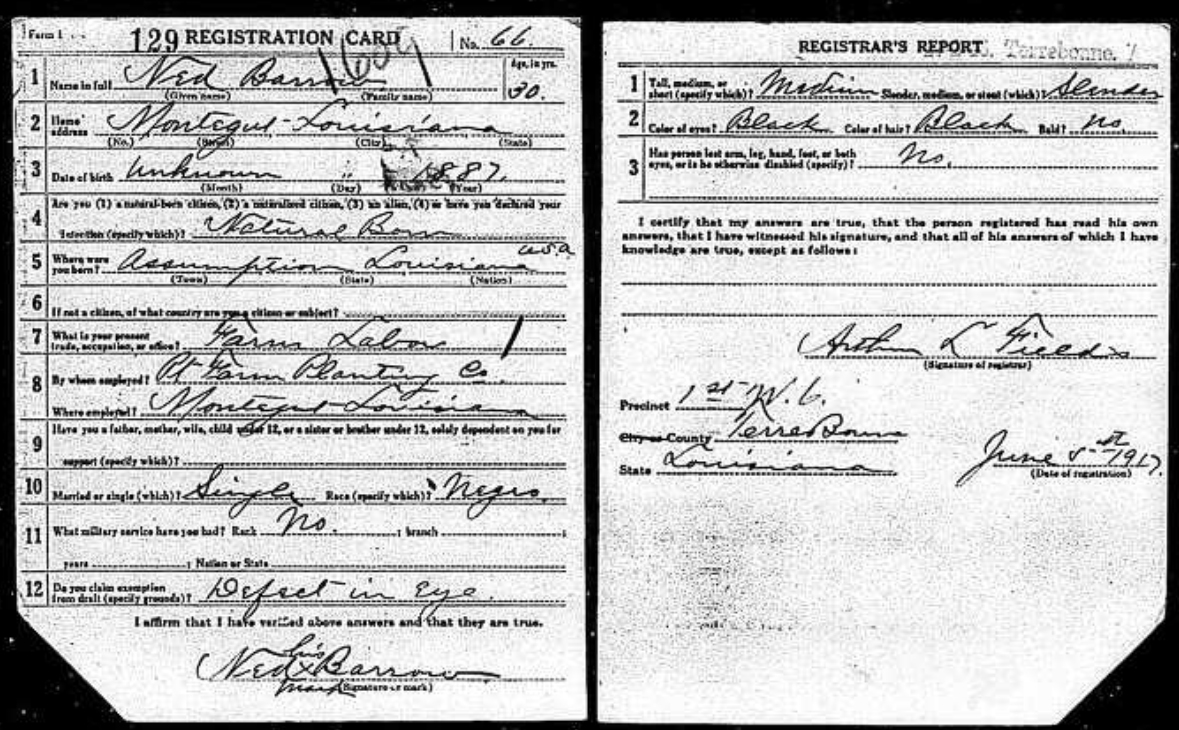 Form 1 129 REGISTRATION CARD No. 66
1609
1 Name in full Ned Barrow Age, in yrs. 30.
(Given name) (Family name)
2 Home address Montegut Louisiana
(No.) (Street) (City) (State)
3 Date of birth Unknown " 1887.
(Month) (Day) (Year)
Are you (1) a natural-born citizen, (2) a naturalized citizen, (3) an alien, (4) or have you declared your
4 intention (specify which)? Natural Born
5 Where were you born? Assumption Louisiana USA
(Town) (State) (Nation)
6 If not a citizen, of what country are you a citizen or subject?
7 What is your present trade, occupation, or office? Farm Labor
8 By whom employed? Pt Farm Planting Co.
Where employed? Montegut Louisiana
9 Have you a father, mother, wife, child under 12, or a sister or brother under 12, solely dependent on you for
support (specify which)?
10 Married or single (which)? Single Race (specify which)? Negro
11 What military service have you had? Rank No. ; branch ;
years ; Nation or State
12 Do you claim exemption from draft (specify grounds)? Defect in Eye.
I affirm that I have verified above answers and that they are true.
his
Ned X Barrow
mark (Signature or mark)
REGISTRAR'S REPORT Terrebonne. 7
1 Tall, medium, or short (specify which)? Medium Slender, medium, or stout (which)? Slender
2 Color of eyes? Black Color of hair? Black Bald? No
3 Has person lost arm, leg, hand, foot, or both eyes, or is he otherwise disabled (specify)? No.
I certify that my answers are true, that the person registered has read his own
answers, that I have witnessed his signature, and that all of his answers of which I have
knowledge are true, except as follows:
Arthur L Fields
(Signature of registrar)
Precinct 1st W.
City or County TerreBonne
State Louisiana June 5 1917.
(Date of registration)